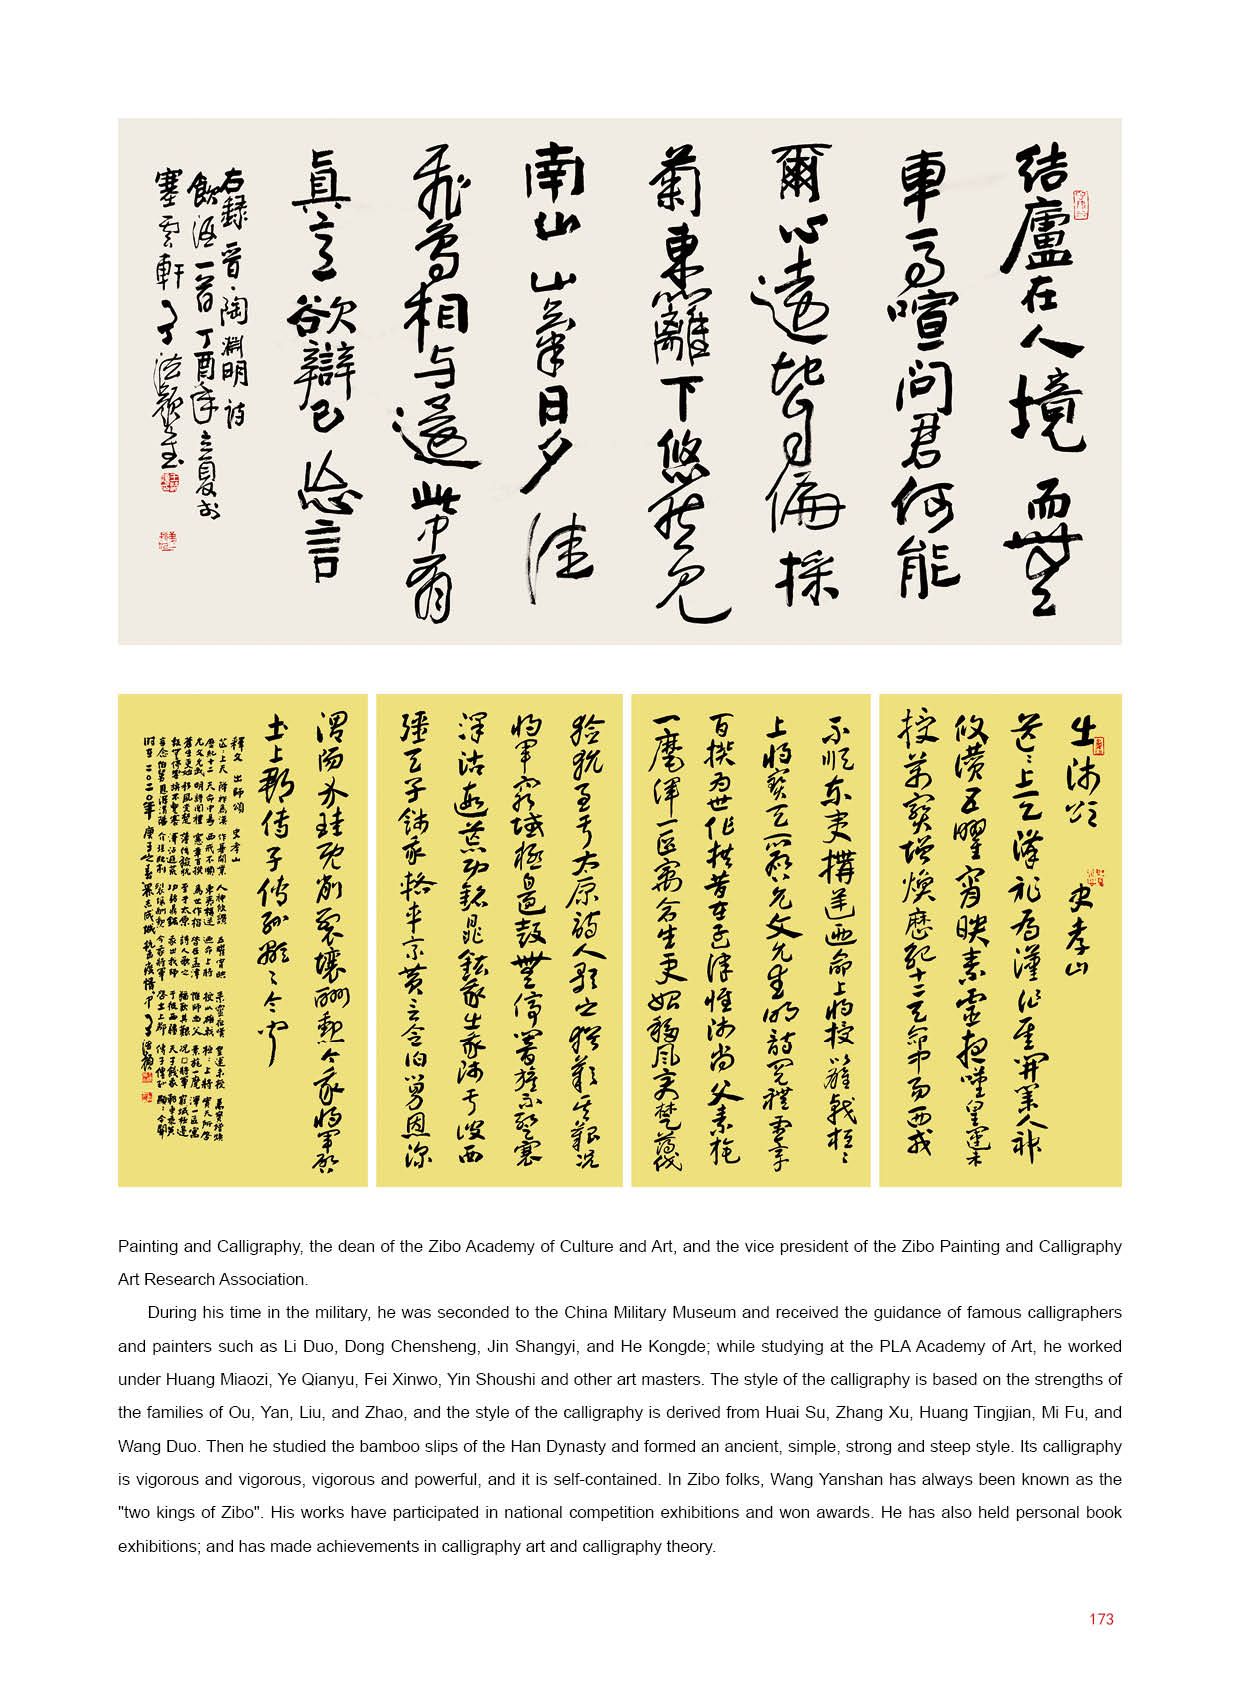 結廬在人境而無
車馬喧問君何能
爾心遠地自偏採
菊東籬下悠然見
南山山氣日夕佳
飛鳥相與還此中有
真意欲辯已忘言
右錄晉陶淵明詩
飲酒一首丁酉年立夏於
塞雲軒
出師頌 史孝山
茫〻上天降祉為漢作基開業人神
攸讚五曜霄映素靈夜嘆皇運未
授萬寶增煥歷紀十二天命中易西戎
不順東夷構逆西命上將授以雄戟桓〻
上將寶天所啓允文允武明詩閱禮憲章
百揆為世作楷昔在孟津惟師尚父素旄
一麾渾一區寓蒼生更始移風變楚薄伐
獫狁至于太原詩人歌之猶歎其艱況
將軍窮域極邊鼓無停響旗不蹔褰
澤沾遐荒功銘鼎鉉我出我師于彼西
疆天子餞我輅車乘黃言念伯舅恩深
渭陽介珪既削裂壤酬勳今我將軍啓
土上郡傳子傳孫顯〻令聞
釋文 出師頌 史孝山
Painting and Calligraphy, the dean of the Zibo Academy of Culture and Art, and the vice president of the Zibo Painting and Calligraphy
Art Research Association.
During his time in the military, he was seconded to the China Military Museum and received the guidance of famous calligraphers
and painters such as Li Duo, Dong Chensheng, Jin Shangyi, and He Kongde; while studying at the PLA Academy of Art, he worked
under Huang Miaozi, Ye Qianyu, Fei Xinwo, Yin Shoushi and other art masters. The style of the calligraphy is based on the strengths of
the families of Ou, Yan, Liu, and Zhao, and the style of the calligraphy is derived from Huai Su, Zhang Xu, Huang Tingjian, Mi Fu, and
Wang Duo. Then he studied the bamboo slips of the Han Dynasty and formed an ancient, simple, strong and steep style. Its calligraphy
is vigorous and vigorous, vigorous and powerful, and it is self-contained. In Zibo folks, Wang Yanshan has always been known as the
"two kings of Zibo". His works have participated in national competition exhibitions and won awards. He has also held personal book
exhibitions; and has made achievements in calligraphy art and calligraphy theory.
173